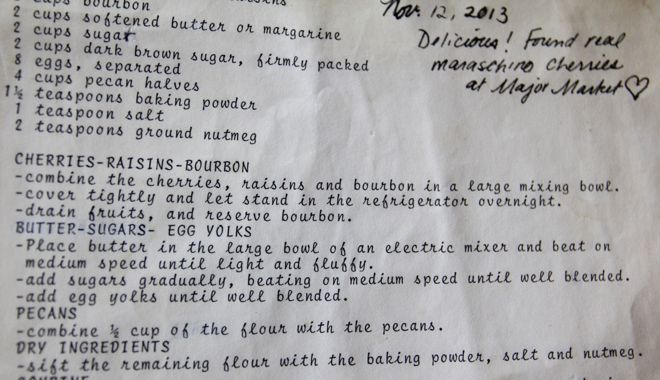 cups bourbon
2 cups softened butter or margarine
2 cups sugar
2 cups dark brown sugar, firmly packed
8 eggs, separated
4 cups pecan halves
1½ teaspoons baking powder
1 teaspoon salt
2 teaspoons ground nutmeg
Nov. 12, 2013
Delicious! Found real
maraschino cherries
at Major Market♡
CHERRIES-RAISINS-BOURBON
-combine the cherries, raisins and bourbon in a large mixing bowl.
-cover tightly and let stand in the refrigerator overnight.
-drain fruits, and reserve bourbon.
BUTTER-SUGARS- EGG YOLKS
-Place butter in the large bowl of an electric mixer and beat on
medium speed until light and fluffy.
-add sugars gradually, beating on medium speed until well blended.
-add egg yolks until well blended.
PECANS
-combine ½ cup of the flour with the pecans.
DRY INGREDIENTS
-sift the remaining flour with the baking powder, salt and nutmeg.